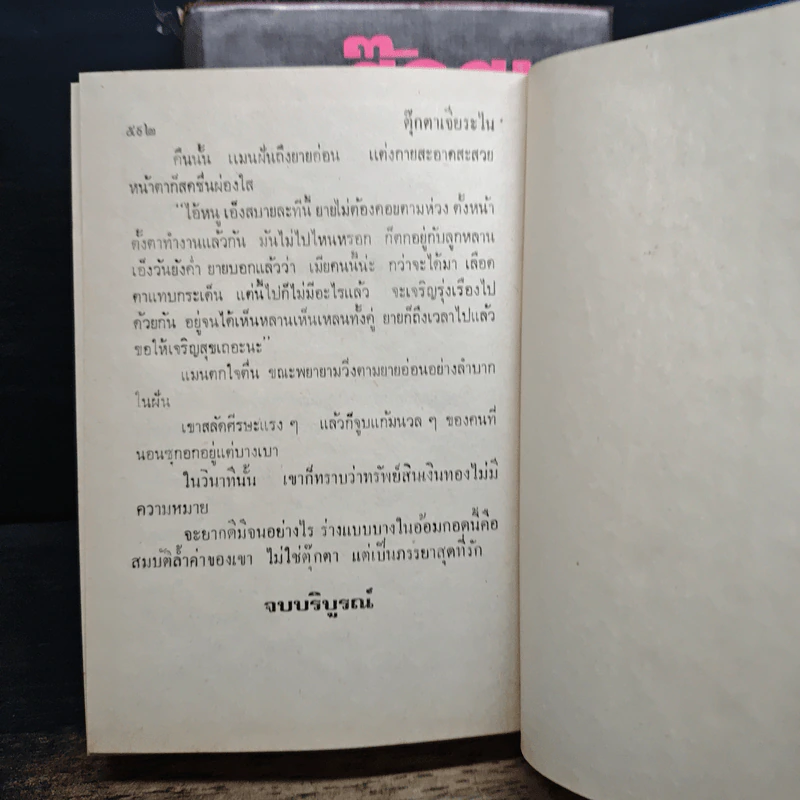 ๕๔๒ ตุ๊กตาเจียระไน
คืนนั้น แมนฝันถึงยายอ่อน แต่งกายสะอาดสะสวย
หน้าตาก็สดชื่นผ่องใส
"ไอ้หนู เอ็งสบายละทีนี้ ยายไม่ต้องคอยตามห่วง ตั้งหน้า
ตั้งตาทำงานแล้วกัน มันไม่ไปไหนหรอก ก็ตกอยู่กับลูกหลาน
เอ็งวันยังค่ำ ยายบอกแล้วว่า เมียคนนี้น่ะ กว่าจะได้มา เลือด
ตาแทบกระเด็น แต่นี้ไปก็ไม่มีอะไรแล้ว จะเจริญรุ่งเรืองไป
ด้วยกัน อยู่จนได้เห็นหลานเห็นเหลนทั้งคู่ ยายก็ถึงเวลาไปแล้ว
ขอให้เจริญสุขเถอะนะ"
แมนตกใจตื่น ขณะพยายามวิ่งตามยายอ่อนอย่างลำบาก
ในฝัน
เขาสลัดศีรษะแรง ๆ แล้วก็จูบแก้มนวล ๆ ของคนที่
นอนซุกอกอยู่แต่บางเบา
ในวินาทีนั้น เขาก็ทราบว่าทรัพย์สินเงินทองไม่มี
ความหมาย
จะยากดีมีจนอย่างไร ร่างแบบบางในอ้อมกอดนี้คือ
สมบัติล้ำค่าของเขา ไม่ใช่ตุ๊กตา แต่เป็นภรรยาสุดที่รัก
จบบริบูรณ์